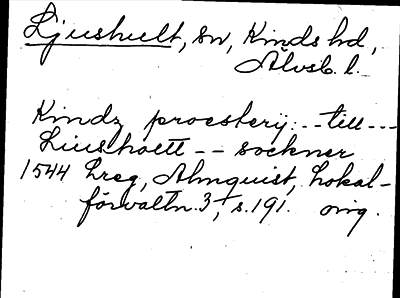 Ljushult, sn, Kinds hd,
Älvsb. l.
Kindz proesterij --- till ---
Liusholtt -- sockner
1544 Lreg, Almquist, Lokal-
förvaltn. 3, s. 191. orig.